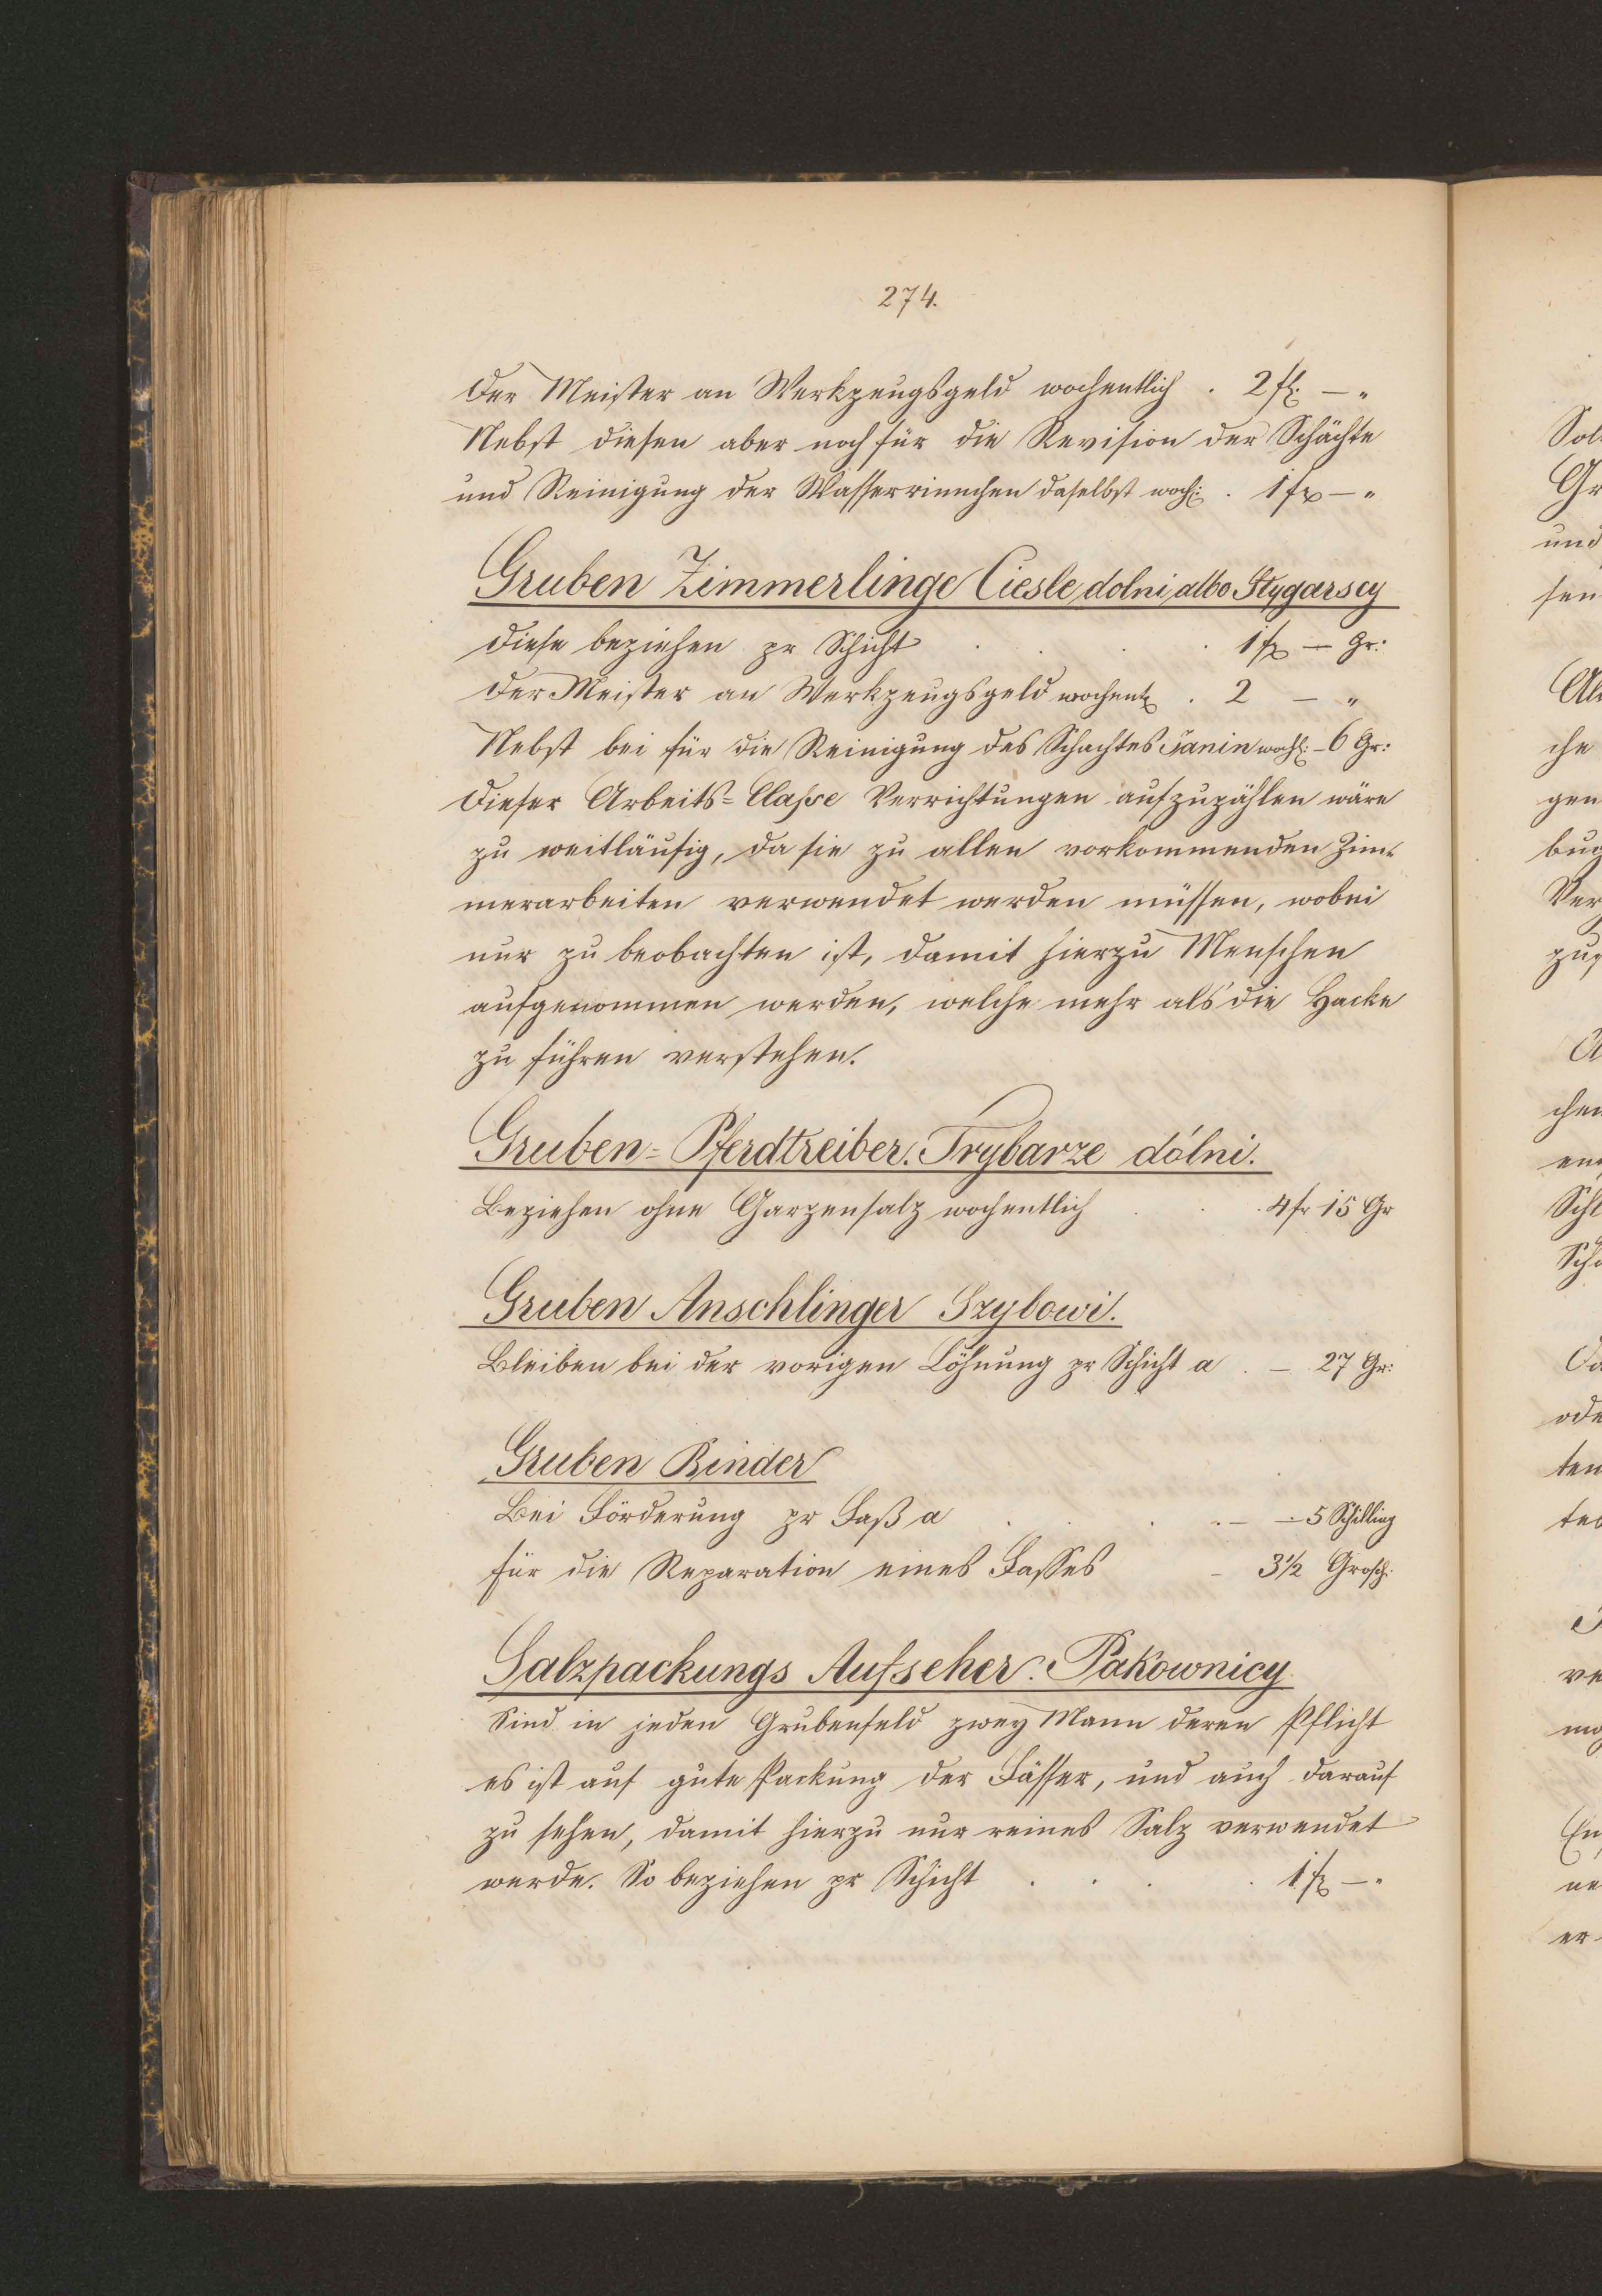 274.
Der Meister an Werkzeugsgeld wochentlich . 2 f: — "
Nebst diesen aber noch für die Revision der Schächte
und Reinigung der Wasserrinnchen daselbst woch: . 1 fr — "
Gruben Zimmerlinge Ciesle dolni albo Stygarscy
Diese beziehen pr Schicht . . . . 1 fr — Gr:
Der Meister an Werkzeugsgeld wochentl . 2 — "
Nebst bei für die Reinigung des Schachtes Janin wochl: - 6 Gr:
Dieser Arbeits= Classe Verrichtungen aufzuzählen wäre
zu weitläufig, da sie zu allen vorkommenden Zim=
merarbeiten verwendet werden müssen, wobei
nur zu beobachten ist, damit hierzu Menschen
aufgenommen werden, welche mehr als die Hacke
zu führen verstehen.
Gruben= Pferdtreiber. Trybarze dólni.
Beziehen ohne Garzensalz wochentlich . . . 4 fr 15 Gr
Gruben Anschlinger Szybowi.
Bleiben bei der vorigen Löhnung pr Schicht a . — 27 Gr:
Gruben Binder
Bei Förderung pr Faß a . . . . — — 5 Schilling
für die Reparation eines Fasses - 3½ Grosch:
Salzpackungs Aufseher. Pakownicy
Sind in jeden Grubenfeld zwey Mann deren Pflicht
es ist auf gute Packung der Fässer, und auch darauf
zu sehen, damit hierzu nur reines Salz verwendet
werde. So beziehen pr Schicht . . . . 1 fr — "